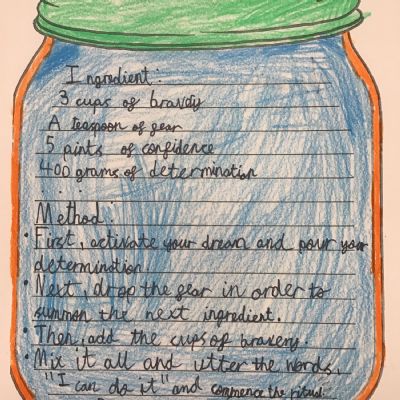 Ingredient:
3 cups of bravdy
A teaspoon of gear
5 paints of confidence
400 grams of determination
Method:
• First, activate your dream and pour your
determination
• Next, drop the gear in order to
summon the next ingredient.
• Then, add the cups of bravery.
• Mix it all and utter the words,
"I can do it" and commence the ritual.